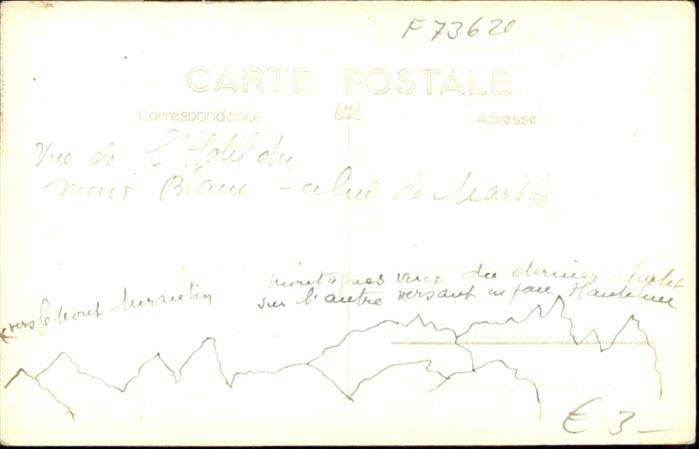 F 73620
CARTE POSTALE
Correspondance
Adresse
Vue de l'Hotel du
mont Blanc - celui de Marthe
montagnes vues du dernier chalet
vers le mont Mirantin
sur l'autre versant en face Hauteluce
€ 3 -